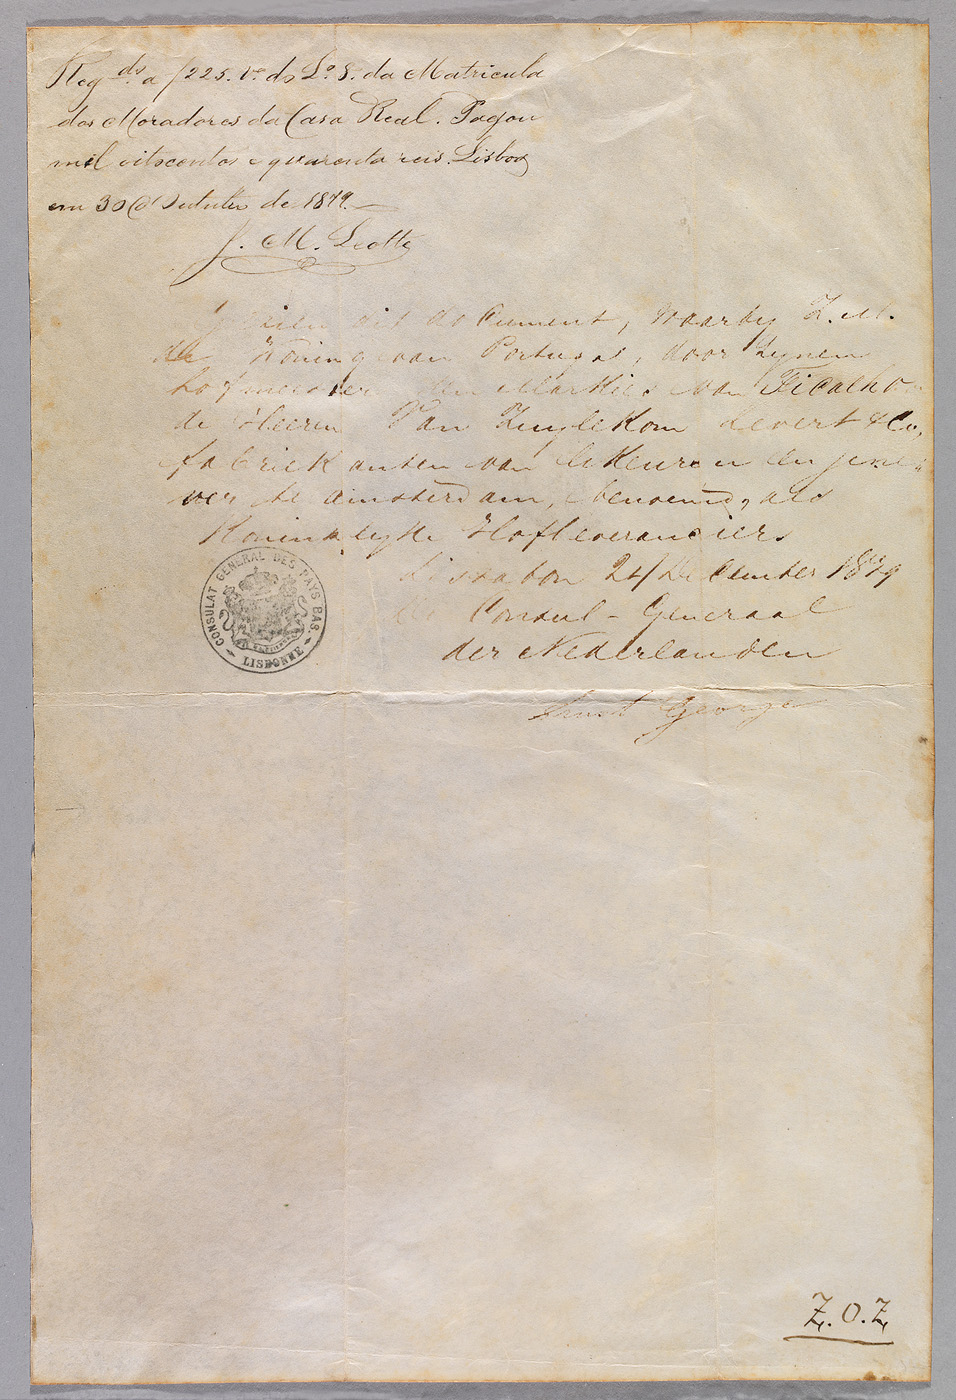 Reg.do a f 225. vo. do Lo 8. da Matricula
dos Moradores da Casa Real. Pagou
mil oitocentos e quarenta reis. Lisboa
em 30 d'Outubro de 1879.
J. M. Leotte
Gezien dit document, waarby Z. M.
de Koning van Portugal, door zynen
hofmeester den Markies van Ficalho
de Heeren Van Zuylekom Levert & Co,
fabriekanten van likeuren en jene-
ver te Amsterdam, benoemd, als
Koninklyke Hofleverancier.
Lissabon 24 December 1879
De Consul-Generaal
der Nederlanden
Ernst George
CONSULAT GENERAL DES PAYS BAS
LISBONNE
Z.O.Z